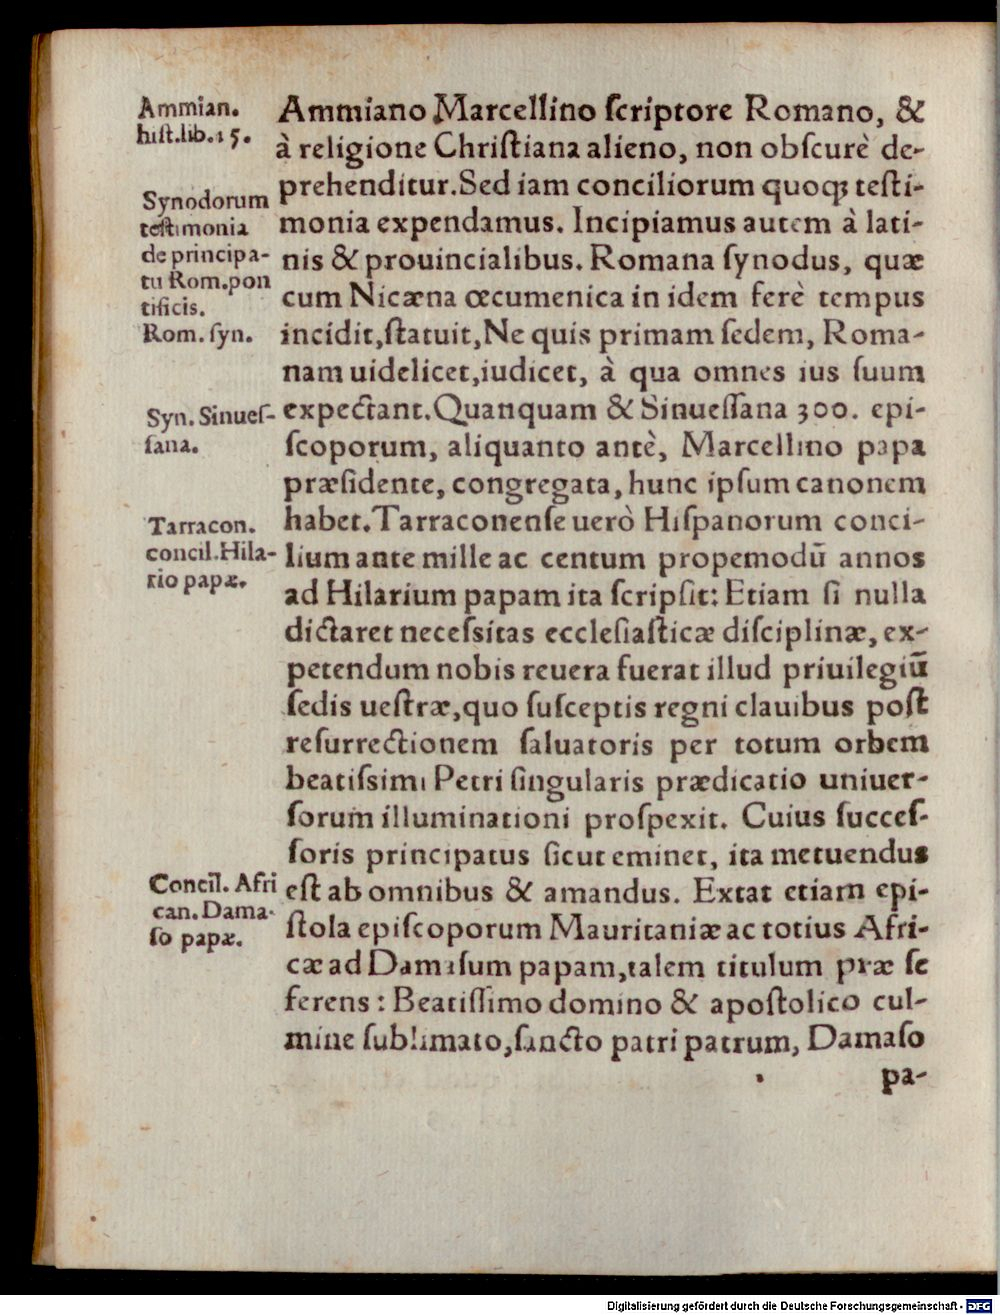 Ammian.
hiſt.lib.15.
Synodorum
teſtimonia
de principa-
tu Rom.pon
tificis.
Rom. ſyn.
Syn. Sinueſ-
ſana.
Tarracon.
concil.Hila-
rio papæ.
Concil. Afri
can. Dama-
ſo papæ.
Ammiano Marcellino ſcriptore Romano, &
à religione Chriſtiana alieno, non obſcurè de-
prehenditur. Sed iam conciliorum quoqꝫ teſti-
monia expendamus. Incipiamus autem à lati-
nis & prouincialibus. Romana ſynodus, quæ
cum Nicæna œcumenica in idem ferè tempus
incidit, ſtatuit, Ne quis primam ſedem, Roma-
nam uidelicet, iudicet, à qua omnes ius ſuum
expectant. Quanquam & Sinueſſana 300. epi-
ſcoporum, aliquanto antè, Marcellino papa
præſidente, congregata, hunc ipſum canonem
habet. Tarraconenſe uerò Hiſpanorum conci-
lium ante mille ac centum propemodū annos
ad Hilarium papam ita ſcripſit: Etiam ſi nulla
dictaret neceſsitas eccleſiaſticæ diſciplinæ, ex-
petendum nobis reuera fuerat illud priuilegiū
ſedis ueſtræ, quo ſuſceptis regni clauibus poſt
reſurrectionem ſaluatoris per totum orbem
beatiſsimi Petri ſingularis prædicatio uniuer-
ſorum illuminationi proſpexit. Cuius ſucceſ-
ſoris principatus ſicut eminet, ita metuendus
eſt ab omnibus & amandus. Extat etiam epi-
ſtola epiſcoporum Mauritaniæ ac totius Afri-
cæ ad Damaſum papam, talem titulum præ ſe
ferens: Beatiſſimo domino & apoſtolico cul-
mine ſublimato, ſancto patri patrum, Damaſo
pa-
Digitalisierung gefördert durch die Deutsche Forschungsgemeinschaft - DFG